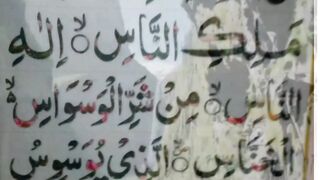 مَلِكِ النَّاسِ ۝ اِلٰهِ
النَّاسِ ۝ مِنْ شَرِّ الْوَسْوَاسِ ۙ
الْخَنَّاسِ ۝ الَّذِیْ یُوَسْوِسُ